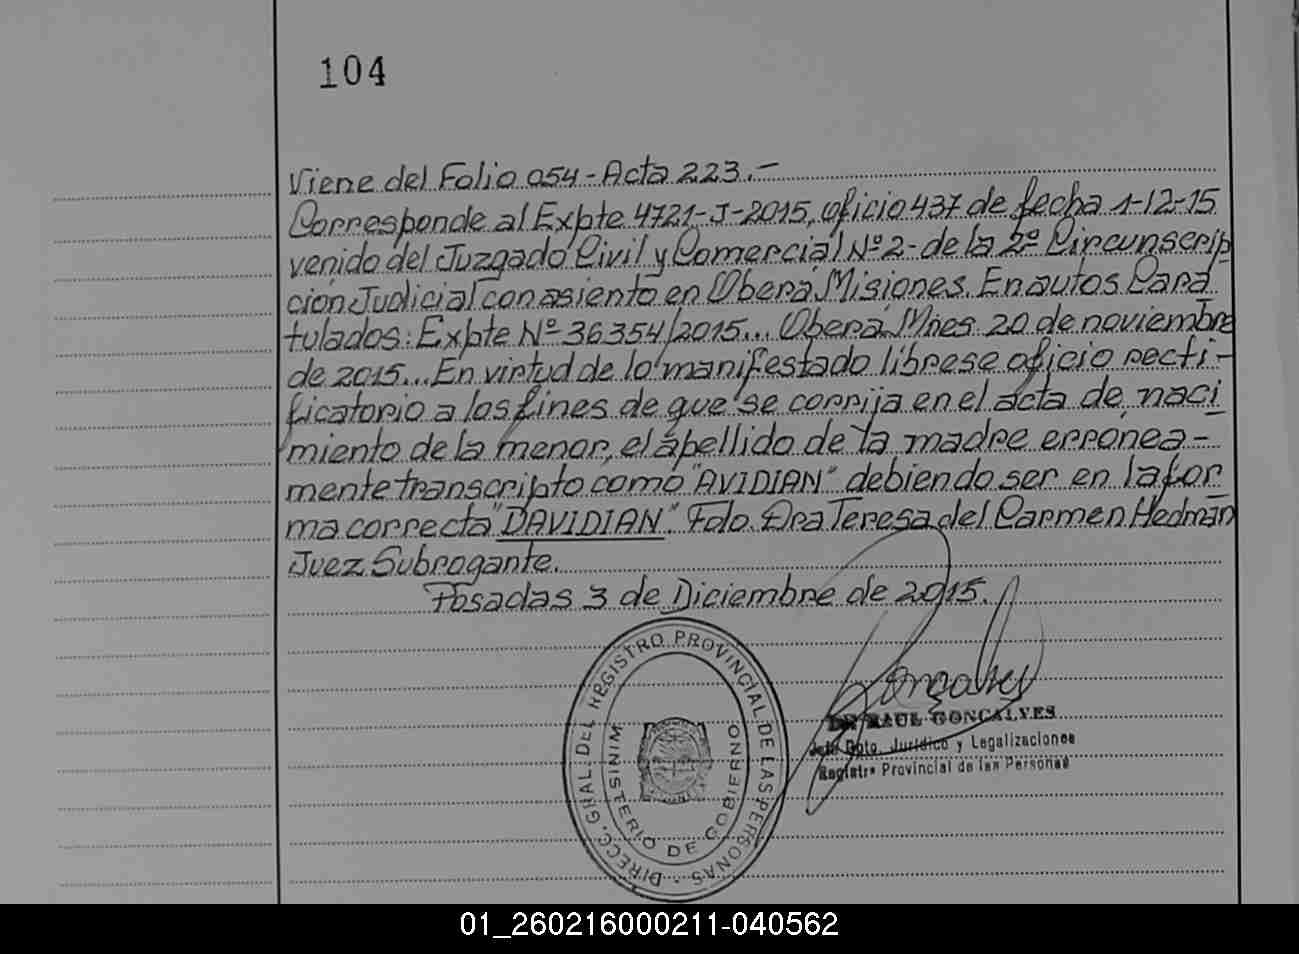 104
Viene del Folio 054 - Acta 223.-
Corresponde al Expte 4721-J-2015, oficio 437 de fecha 1-12-15
venido del Juzgado Civil y Comercial Nº 2 - de la 2º Circunscrip
ción Judicial con asiento en Oberá, Misiones. En autos Cara
tulados: Expte Nº 36354/2015... Oberá, Mnes 20 de noviembre
de 2015... En virtud de lo manifestado líbrese oficio recti-
ficatorio a los fines de que se corrija en el acta de naci
miento de la menor, el apellido de la madre erronea-
mente transcripto como "AVIDIAN" debiendo ser en la for
ma correcta "DAVIDIAN". Fdo. Dra Teresa del Carmen Hedman
Juez Subrogante.
Posadas 3 de Diciembre de 2015.
DIRECC. GRAL. DEL REGISTRO PROVINCIAL DE LAS PERSONAS
MINISTERIO DE GOBIERNO
Gonçalves
DR. RAUL GONCALVES
Jefe Dpto. Jurídico y Legalizaciones
Registro Provincial de las Personas
01_260216000211-040562